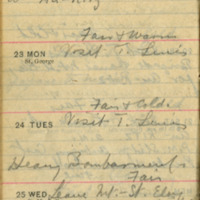 Fair & Warm
23 MON Visit T. Lewis
St. George
Fair & Cold
24 TUES Visit T. Lewis
Heavy Bombarments
Fair
25 WED Leave Mt. St. Eloy